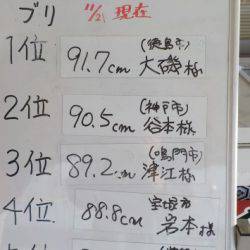 ブリ 11/21 現在
1位 91.7cm (徳島市) 大磯様
2位 90.5cm (神戸市) 谷本様
3位 89.2cm (鳴門市) 津江様
4位 88.8cm 宝塚市 岩本様